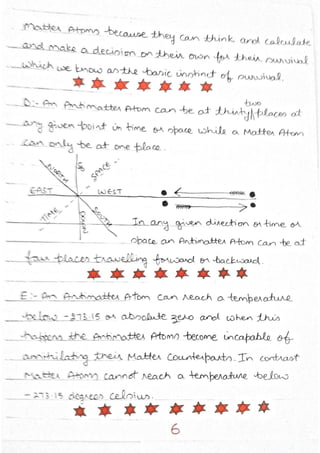 Matter Atoms because they can think and calculate
and make a decision on their own for their survival
which we know as the basic instinct of survival.
D:- An Antimatter Atom can be at thirty two places at
any given point in time or space while a Matter Atom
can only be at one place.
NORTH
UP
SPACE
EAST
WEST
TIME
DOWN
SOUTH
In any given direction or time or
space an Antimatter Atom can be at
four places travelling forward or backward.
E:- An Antimatter Atom can reach a temperature
below -273.15 or absolute zero and when this
happens the Antimatter Atoms become incapable of
annihilating their Matter Counterparts. In contrast
Matter Atoms cannot reach a temperature below
-273.15 degrees celsius.
6